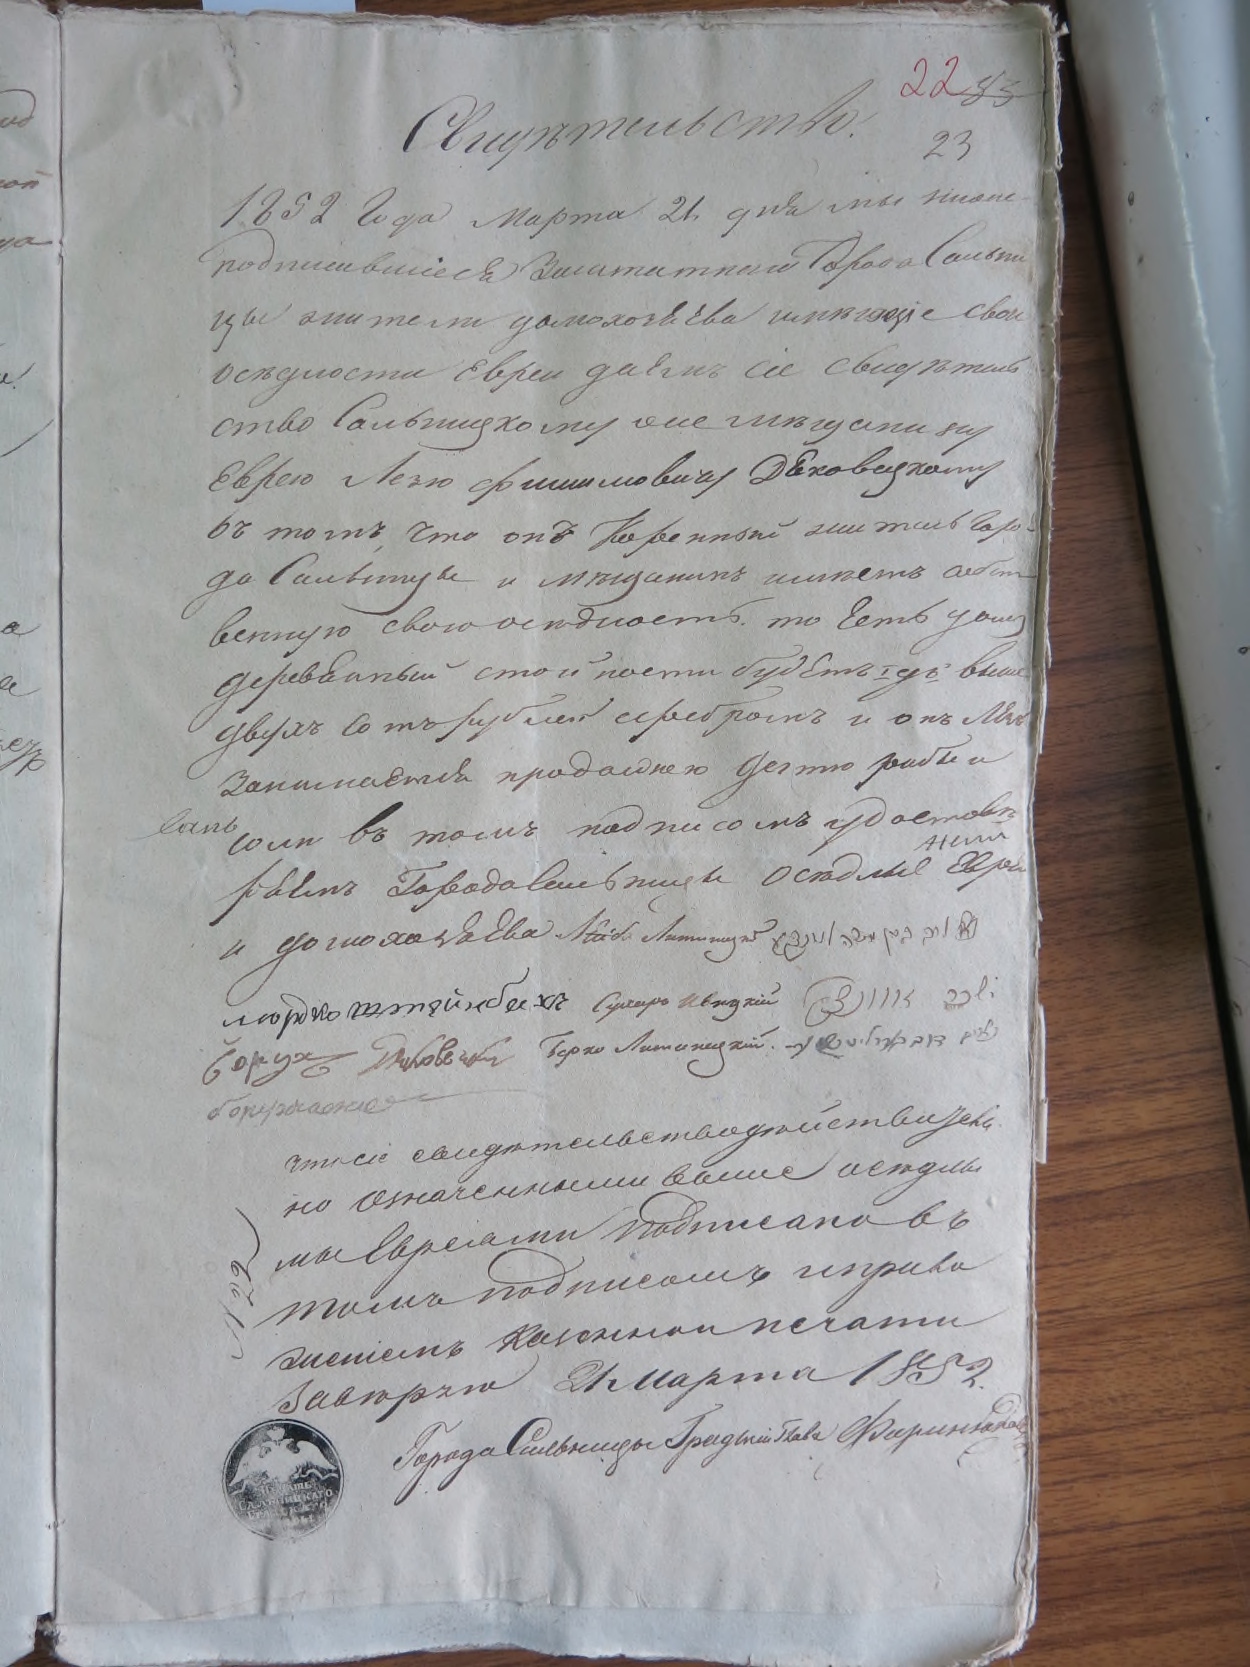 22 83
23
Свидѣтельство.
1852 Года Марта 21 дня мы ниже
подписавшіеся Заштатнаго Города Сальни
цы жители домохозяева имѣющіе свои
осѣдлости Евреи даемъ сіе свидѣтель
ство Сальницкому мѣщанину
Еврею Лезю Фишиловичу Дяковецкому
въ томъ, что онъ Коренный житель Горо
да Сальницы и мѣщанинъ имѣетъ собст
венную свою осѣдлость. то есть домъ
деревянный стойности будетъ выше
двухъ сотъ рублей серебромъ и онъ
Занимается продажею дегтю рыбы и
соли въ томъ подписомъ удостовѣ
ряемъ Города Сальницы осѣдлые Евреи
и домохозяева Литинецкій
Мордко Штейнбехъ
Борух Берко Литинецкій.
что сіе свидѣтельство дѣйствитель
но означенными выше осѣдлы
мы Евреями подписано въ
томъ подписомъ и прило
женіемъ Казенной печати
Завѣряю 21 Марта 1852.
Города Сальницы Градскій Глава
САЛЬНИЦКАГО